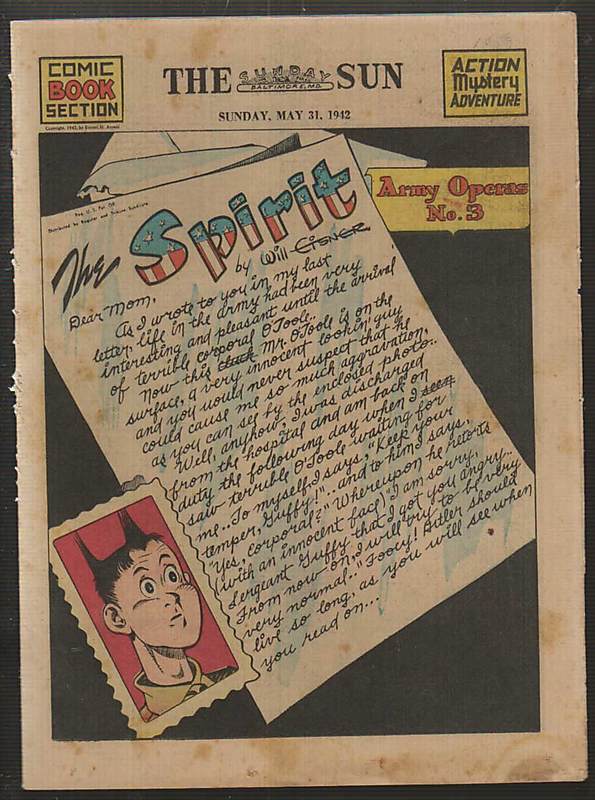 COMIC
BOOK
SECTION
THE SUNDAY SUN
BALTIMORE, MD.
ACTION
Mystery
ADVENTURE
SUNDAY, MAY 31, 1942
Reg. U. S. Pat. Off.
Distributed by Register and Tribune Syndicate
The Spirit
by Will Eisner
Army Operas
No. 3
Dear Mom,
As I wrote to you in my last
letter, life in the army had been very
interesting and pleasant until the arrival
of terrible corporal O'Toole..
Now this Mr. O'Toole is on the
surface, a very innocent lookin' guy
and you would never suspect that he
could cause me so much aggravation,
as you can see by the enclosed photo..
Well, anyhow, I was discharged
from the hospital and am back on
duty the following day when I seen
saw terrible O'Toole waiting for
me... To myself, I says, "Keep your
temper, Guffy!"..and to him I says,
"Yes, corporal?" Whereupon he retorts
(with an innocent face) "I am sorry,
Sergeant Guffy that I got you angry...
From now on, I will try to be very
very normal.." Fooey! Hitler should
live so long, as you will see when
you read on...